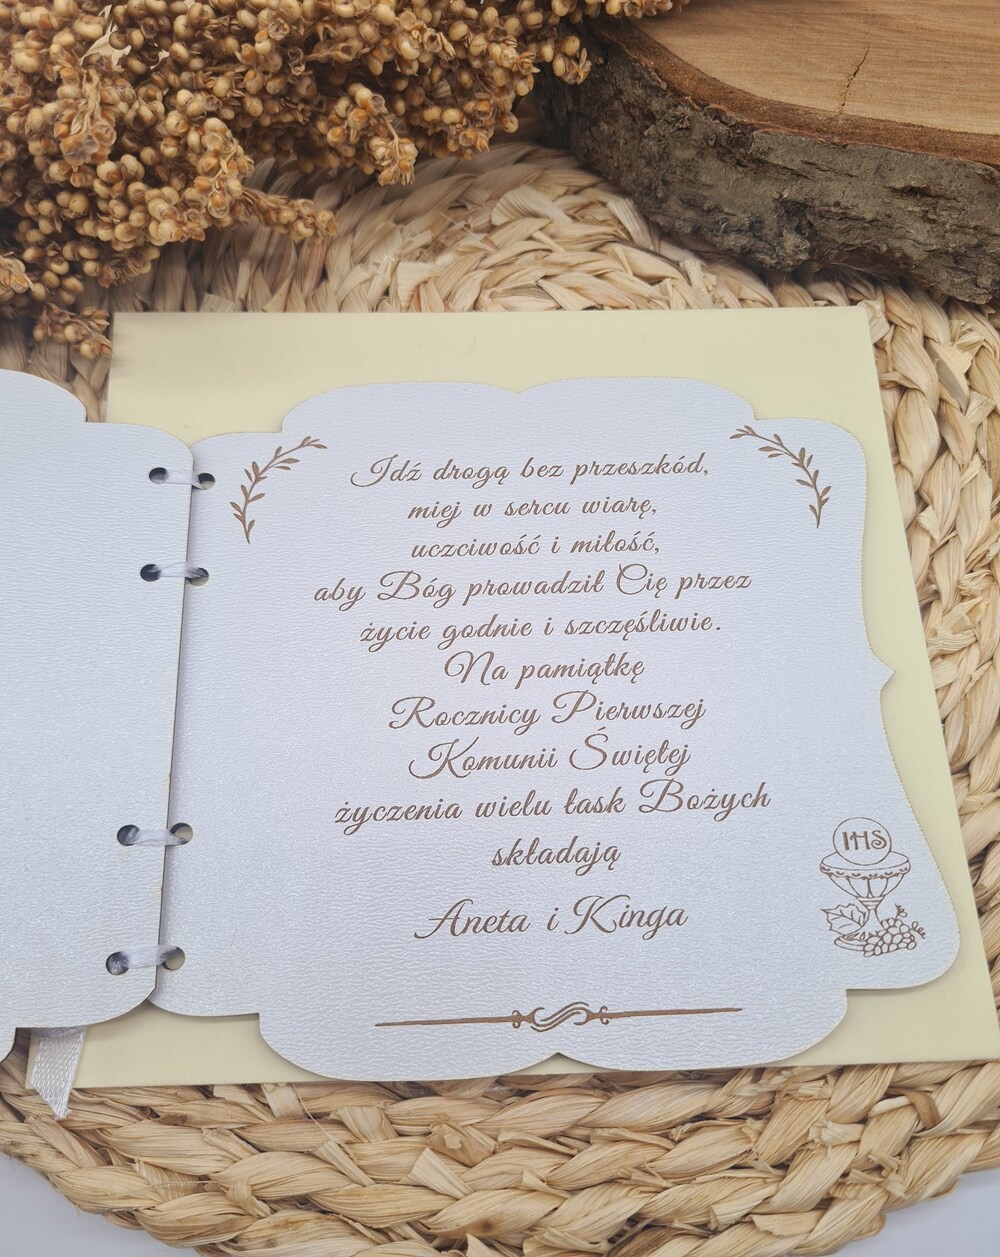 Idź drogą bez przeszkód,
miej w sercu wiarę,
uczciwość i miłość,
aby Bóg prowadził Cię przez
życie godnie i szczęśliwie.
Na pamiątkę
Rocznicy Pierwszej
Komunii Świętej
życzenia wielu łask Bożych
składają
Aneta i Kinga
IHS